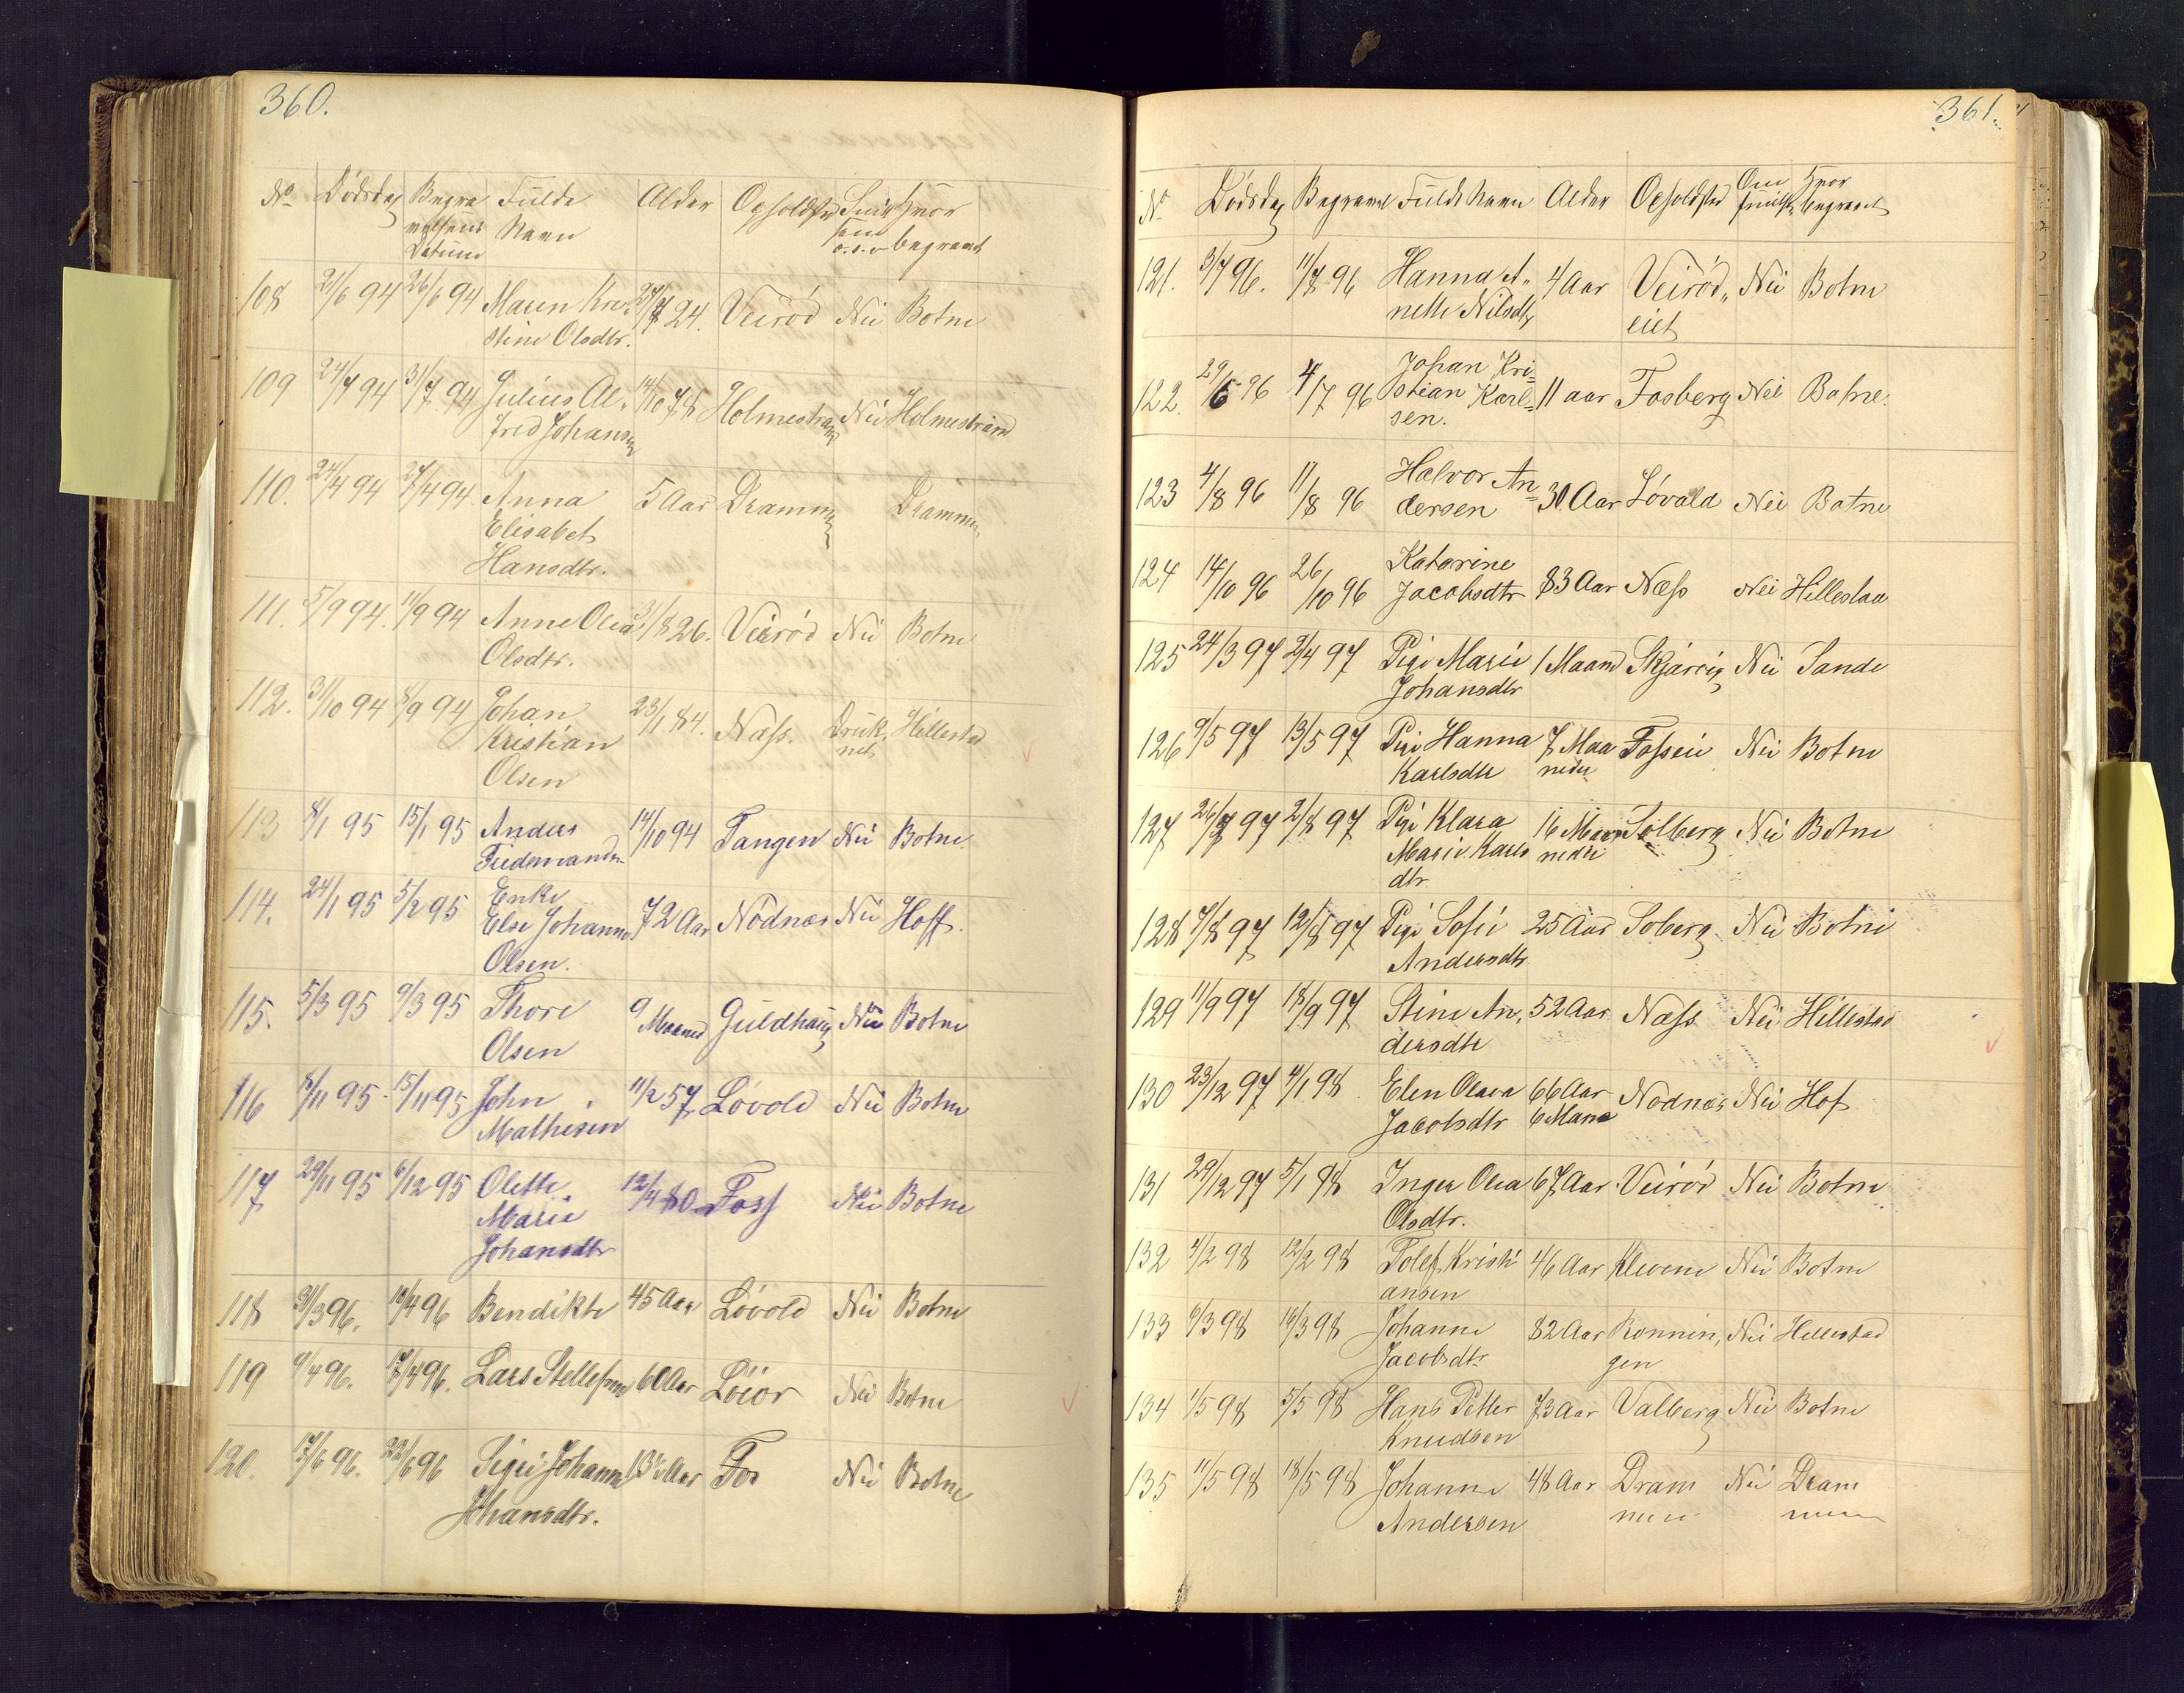 360.
No Dödsdag Begra Fulde Alder Opholdsted Hvor
velsens Navn
Datum o.s.v begravet
108 21/6 94 26/6 94 Maren Kri- 27/7 24. Veiröd Nei Botne
stine Olsdtr.
109 24/7 94 31/7 94 Julius Al- 14/10 78 Holmestrand Nei Holmestrand
fred Johansen
110. 24/4 94 27/4 94 Anna 5 Aar Drammen Drammen
Elisabet
Hansdtr.
111. 5/9 94. 11/9 94 Anne Olea 31/8 26. Veiröd Nei Botne
Olsdtr.
112. 31/10 94 8/9 94 Johan 23/1 84. Næss. Druk- Hillestad
Kristian net
Olsen
113 8/1 95 15/1 95 Anders 14/10 94 Tangen Nei Botne
114. 24/1 95 5/2 95 Enke
Else Johanne 72 Aar Nödnæs Nei Hoff.
Olsen.
115. 5/3 95 9/3 95 Thore 9 Guldhaug Nei Botne
Olsen Maaned
116 8/11 95 15/11 95 John 11/2 57 Lövold Nei Botne
Mathisen
117 29/11 95 6/12 95 Olette 12/4 80 Foss Nei Botne
Marie
Johansdtr
118 31/3 96. 10/4 96 Bendikte 45 Aar Lövold Nei Botne
119 9/4 96. 17/4 96. Lars Stellefsen 60 Aar Löior Nei Botne
120. 17/6 96. 22/6 96 Sigri Johanne 13½ Aar Fos Nei Botne
Johansdtr.
361.
No Dödsdag Begravet Fulde Navn Alder Opholdsted Om Hvor
smitsk. begravet
121. 3/7 96. 11/7 96 Hanna A- 4 Aar Veiröd- Nei Botne
nette Nilsdtr eiet
122. 29/6 96 4/7 96 Johan Kri-
stian Karl- 11 aar Fosberg Nei Botne.
sen.
123 4/8 96 11/8 96 Halvor An- 30 Aar Lövald Nei Botne
dersen
124 14/10 96 26/10 96 Katarine
Jacobsdtr 83 Aar Næss Nei Hillestad
125 24/3 97 2/4 97 Pige Marie 1 Maaned Skjærvig Nei Sande
Johansdtr
126 9/5 97 13/5 97 Pige Hanna 7 Maa Fosseie Nei Botne
Karlsdtr neder
127 26/7 97 2/8 97 Pige Klara 16 Maa Solberg Nei Botne
Marie Karls neder
dtr.
128 7/8 97 12/8 97 Pige Sofie 25 Aar Soberg Nei Botne
Andersdtr
129 11/9 97 18/9 97 Stine An- 52 Aar Næss Nei Hillestad
dersdtr
130 23/12 97 4/1 98 Elen Olava 66 Aar Nodnæs Nei Hof
Jacobsdtr 6 Maane
131 29/12 97 5/1 98 Inger Olea 67 Aar Veiröd Nei Botne
Olsdtr.
132 4/2 98 12/2 98 Tolef Kristi 46 Aar Klevene Nei Botne
ansen
133 6/3 98 16/3 98 Johanne 82 Aar Ronnin- Nei Hillestad
Jacobsdtr gen
134 1/5 98 5/5 98 Hans Petter 73 Aar Valberg Nei Botne
Knudsen
135 11/5 98 18/5 98 Johanne 48 Aar Dram Nei Dram
Andersen men men